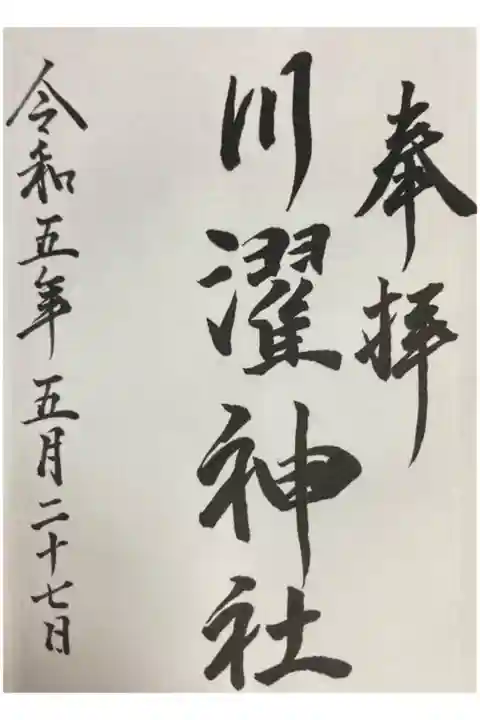 奉拝
川濯神社
令和五年五月二十七日